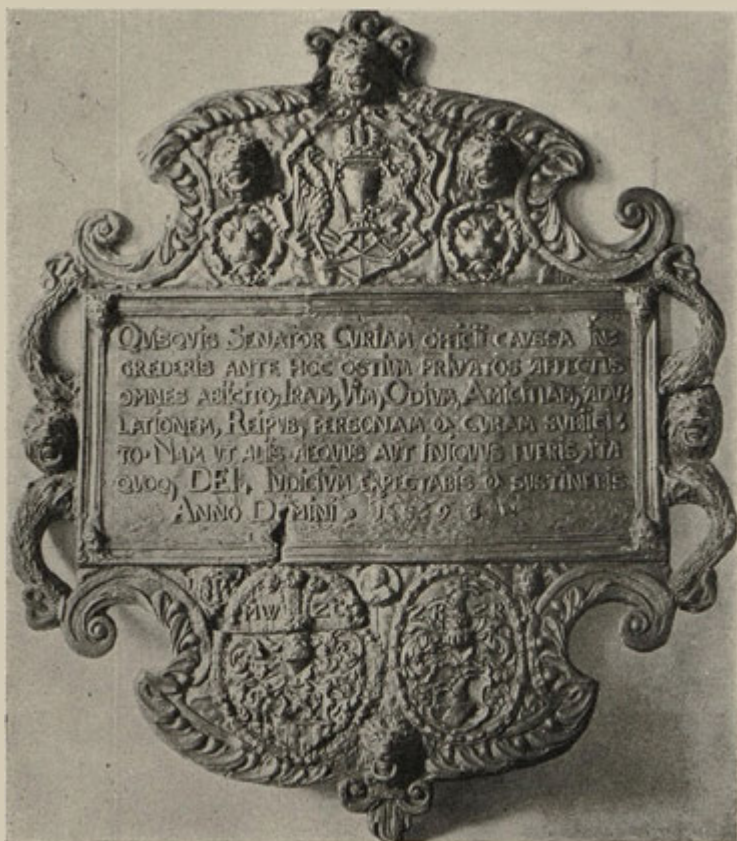 QVISQVIS SENATOR CVRIAM OFFICII CAVSSA IN
GREDERIS ANTE HOC OSTIVM PRIVATOS AFFECTVS
OMNES ABIICITO, IRAM, VIM, ODIVM, AMICITIAM, ADV
LATIONEM, REIPVB, PERSONAM & CVRAM SVBIICI
TO · NAM VT ALIIS AEQVVS AVT INIQVVS FVERIS, ITA
QVOQ, DEI, IVDICIVM EXPECTABIS & SVSTINEBIS
ANNO DOMINI
MW